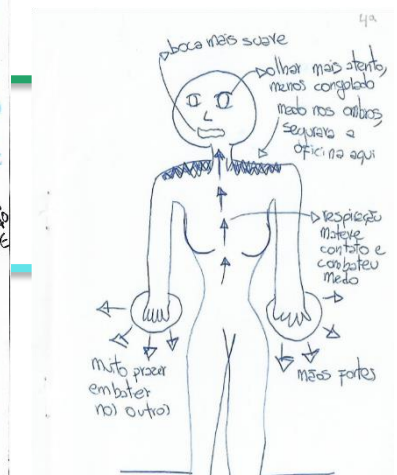 4ª
boca mais suave
olhar mais atento,
menos congelado
medo nos ombros,
segurava a
oficina aqui
respiração
manteve
contato e
combateu
medo
muito prazer
em bater
no(s) outro(s)
mãos fortes